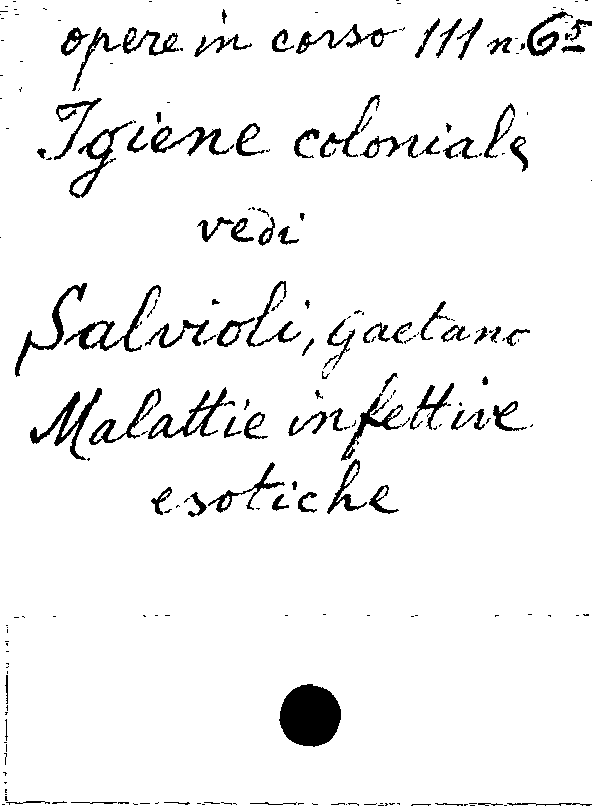 opere in corso III n. 65
Igiene coloniale
vedi
Salvioli, Gaetano
Malattie infettive
esotiche